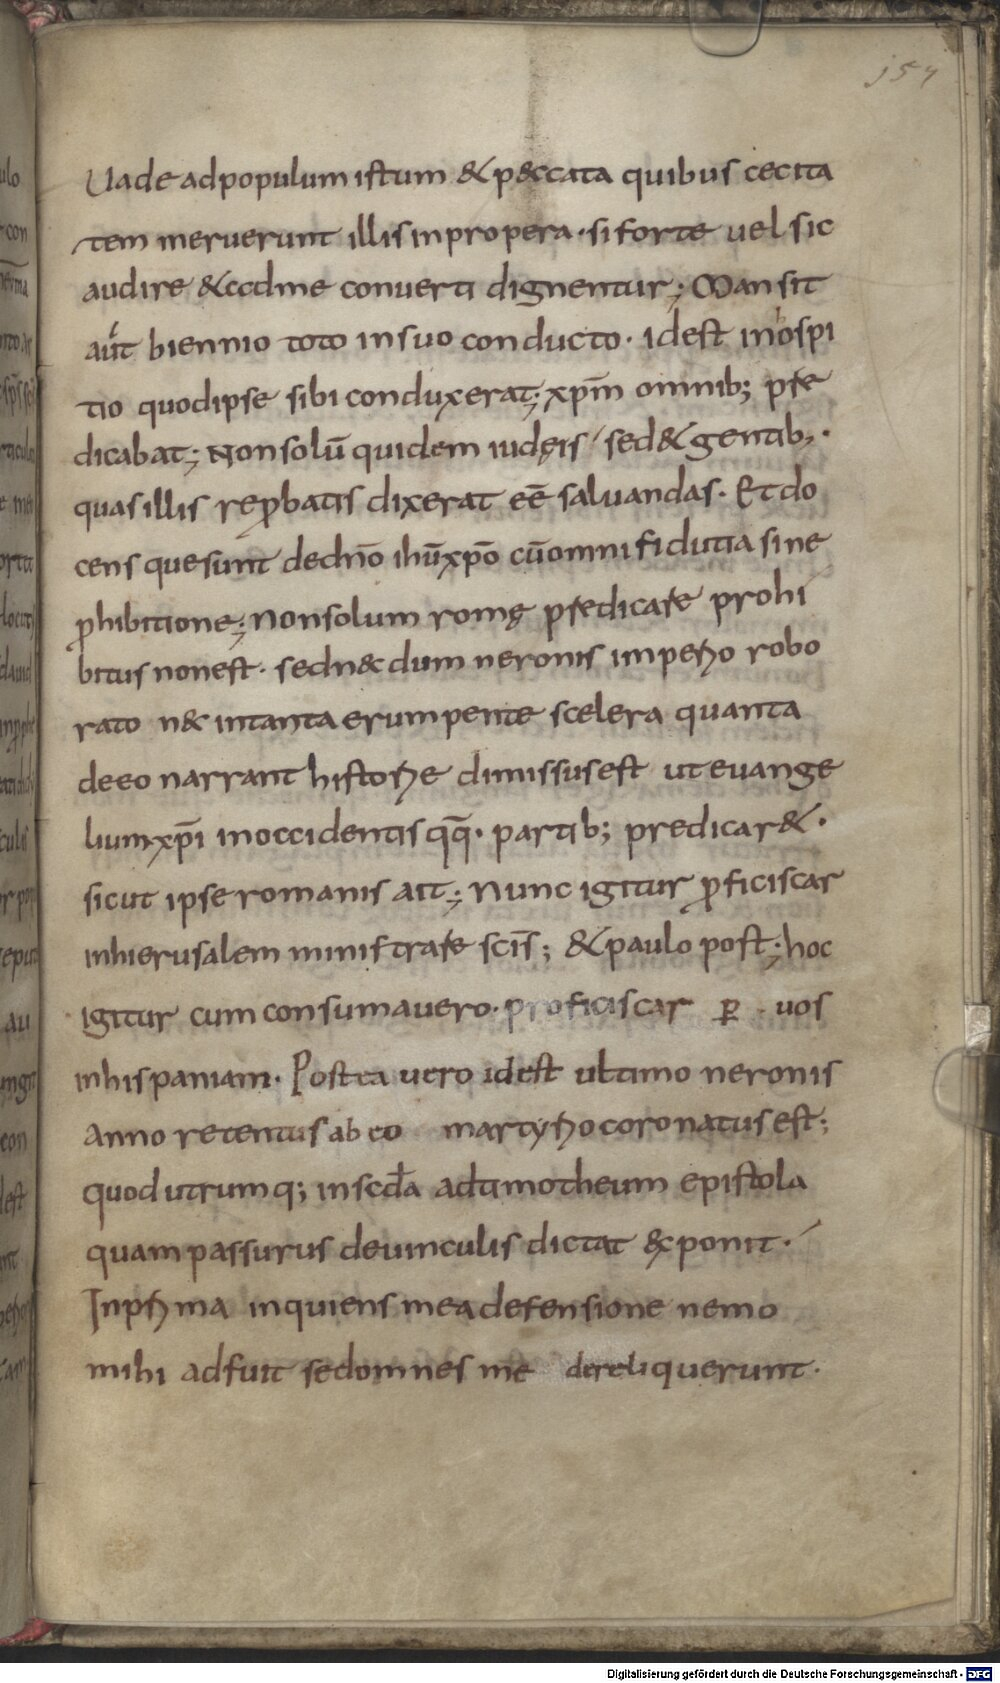 157
Uade ad populum istum & p&ccata quibus cecita
tem meruerunt illis inpropera · si forte uel sic
audire & ad me conuerti dignentur; Mansit
aut̄ biennio toto in suo conducto · id est in hospi
tio quod ipse sibi conduxerat; xp̄m omnib; pre
dicabat; Non solū quidem iudęis / sed & gentib; ·
quas illis rep̱batis dixerat eē saluandas · Et do
cens que sunt de dn̄o ihū xp̄o cū omni fidutia sine
p̱hibitione; Non solum romę predicare prohi
bitus non est · sed n& dum neronis imperio robo
rato n& in tanta erumpente scelera quanta
de eo narrant historie dimissus est ut euange
lium xp̄i in occidentis qq̄ · partib; predicar& ·
sicut ipse romanis ait; Nunc igitur p̱ficiscar
in hierusalem ministrare sc̄is; & paulo post; hoc
igitur cum consumauero · proficiscar ꝑ · uos
in hispaniam · Postea uero id est ultimo neronis
anno retentus ab eo martyrio coronatus est;
quod utrumq; in scd̄a ad timotheum epistola
quam passurus de uinculis dictat &ponit ·
In prima inquiens mea defensione nemo
mihi adfuit sed omnes me dereliquerunt ·
Digitalisierung gefördert durch die Deutsche Forschungsgemeinschaft - DFG